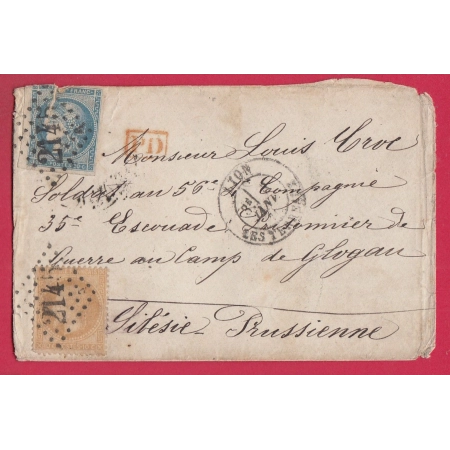 FRANC
2145
PD
Monsieur Louis Croc
LYON
JANV
LES TERREAUX
Soldat au 56e Compagnie
35e Escouade Prisonnier de
Guerre au Camp de Glogau
2145
Silésie Prussienne